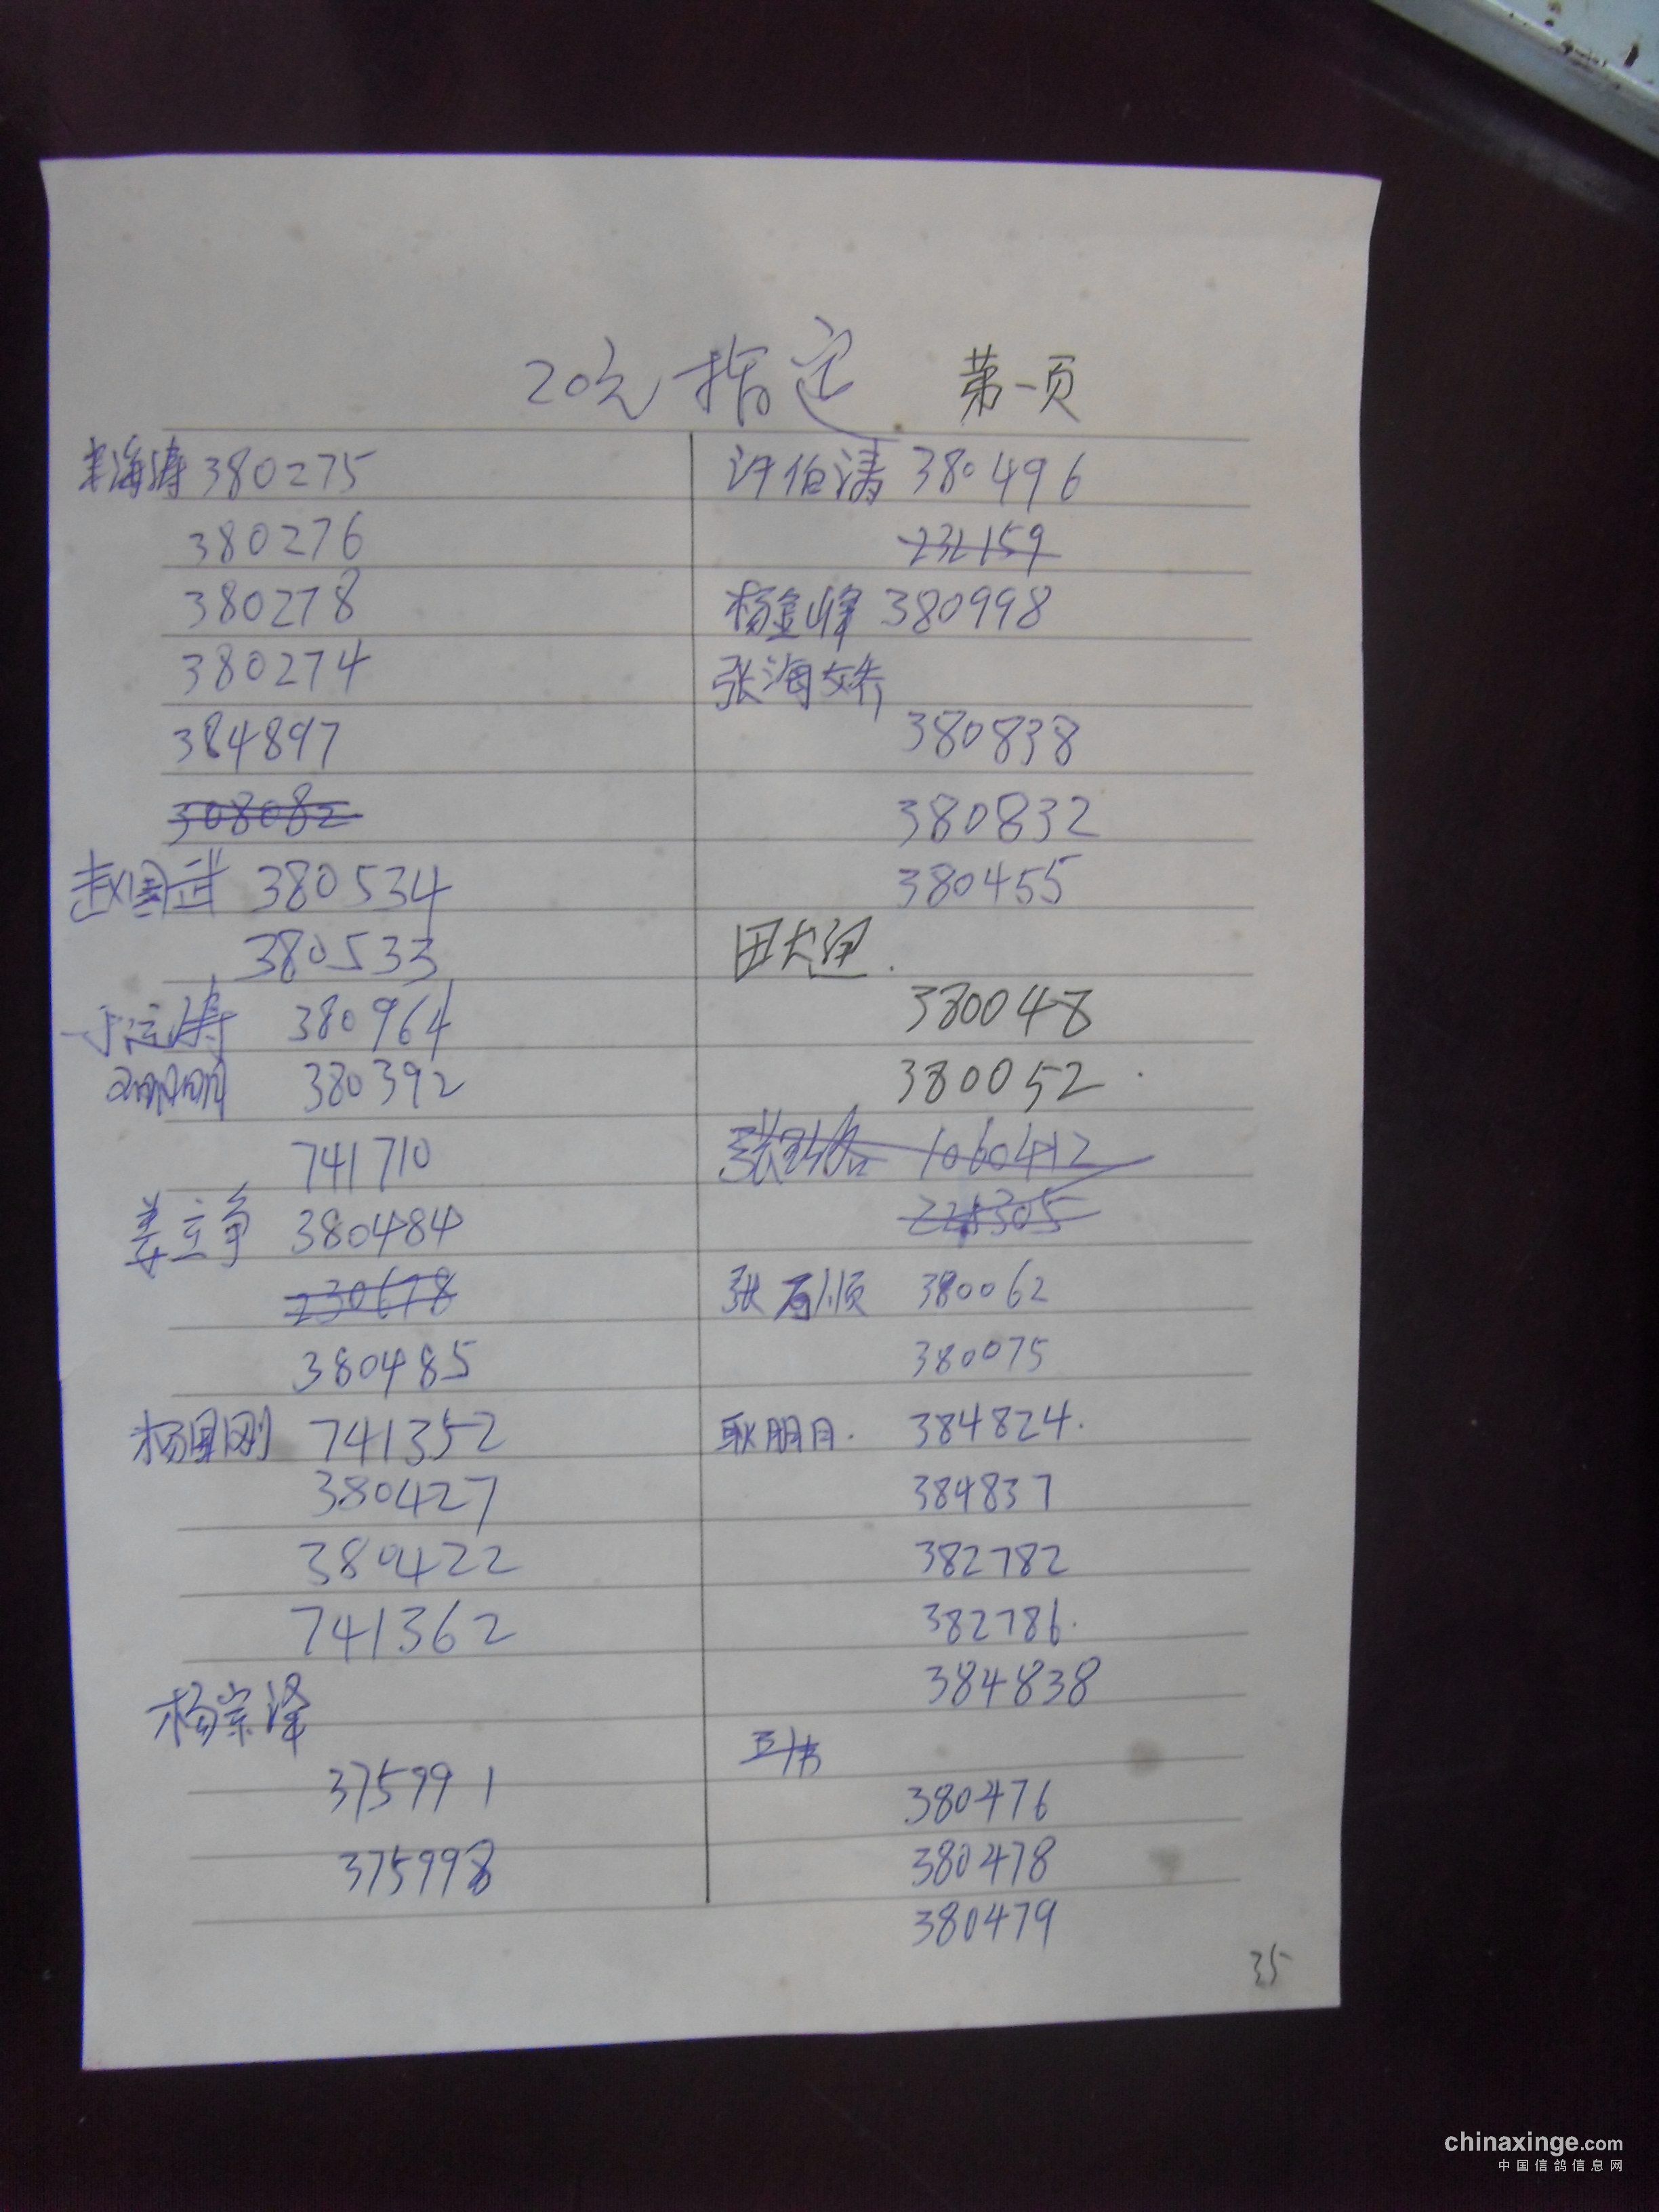 20元指定 第一页
海涛 380275
380276
380278
380274
384897
308082
赵国武 380534
380533
于运涛 380964
380392
741710
姜立争 380484
230678
380485
杨国刚 741352
380427
380422
741362
杨宗泽
375991
375998
许伯涛 380496
232159
杨金峰 380998
张海娇
380838
380832
380455
田大迎.
380048
380052.
张 1060412
305
张有顺 380062
380075
耿朋月. 384824.
384837
382782
382786.
384838
380476
380478
380479
35
chinaxinge.com
中国信鸽信息网